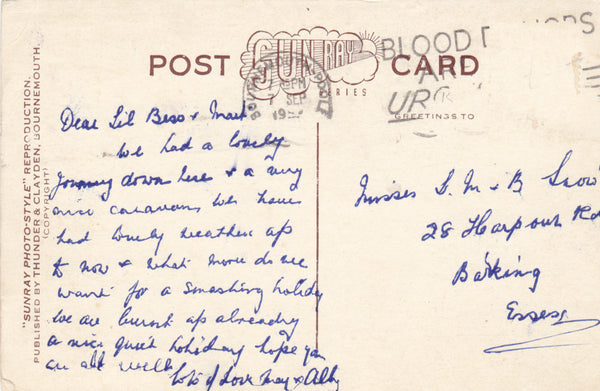 POST CARD
SUNRAY
SERIES
GREETINGS TO
BOURNEMOUTH-POOLE
PM
7 SEP
19
BLOOD
AR
UR
"SUNRAY PHOTO-STYLE" REPRODUCTION.
PUBLISHED BY THUNDER & CLAYDEN, BOURNEMOUTH.
(COPYRIGHT)
Dear Lil Bess &
We had a lovely
Journey down here & a very
nice caravan, we have
had lovely weather up
to now & what more do we
want for a smashing holiday
We are burnt up already
a nice quiet holiday hope you
are all well.
Lots of Love May & Alby
Misses L. M & B Snow
28 Harpour Rd
Barking
Essex